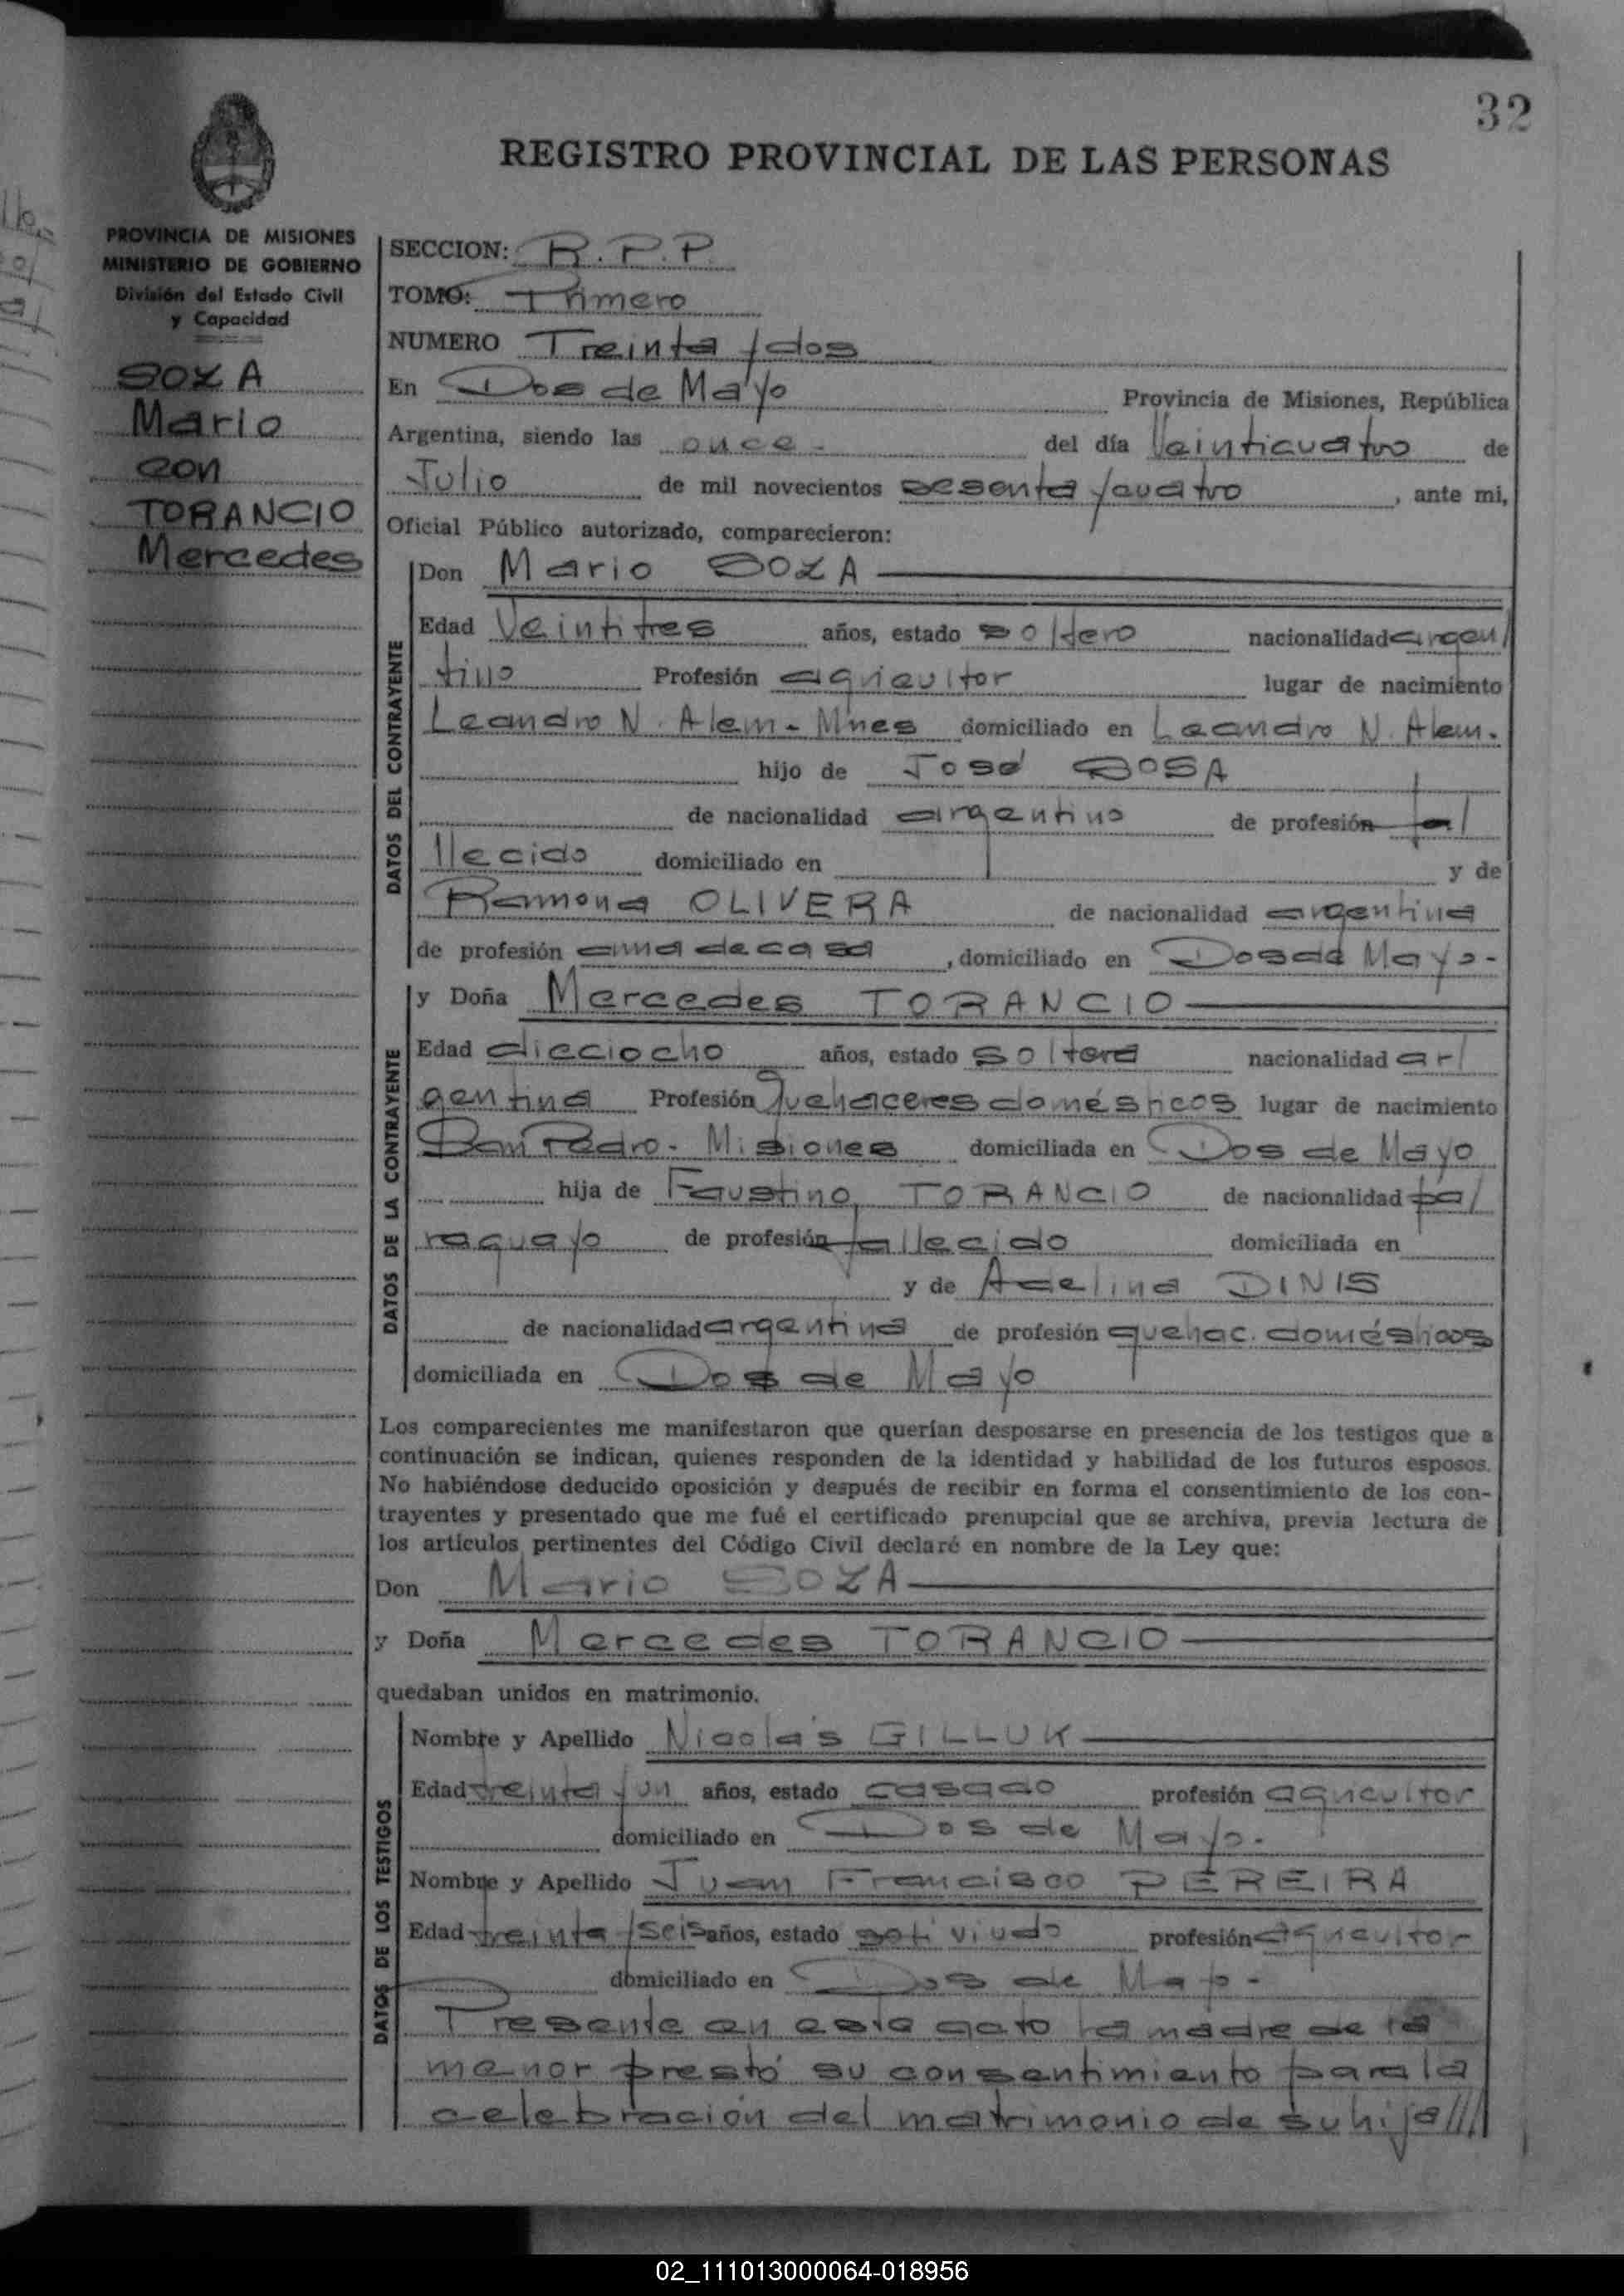 32
REGISTRO PROVINCIAL DE LAS PERSONAS
PROVINCIA DE MISIONES
MINISTERIO DE GOBIERNO
División del Estado Civil
y Capacidad
SOZA
Mario
con
TORANCIO
Mercedes
SECCION: R.P.P.
TOMO: Primero
NUMERO Treinta y dos
En Dos de Mayo Provincia de Misiones, República
Argentina, siendo las once - del día Veinticuatro de
Julio de mil novecientos sesenta y cuatro, ante mi,
Oficial Público autorizado, comparecieron:
DATOS DEL CONTRAYENTE
Don Mario SOZA
Edad Veintitres años, estado soltero nacionalidad argen/
tino Profesión agricultor lugar de nacimiento
Leandro N. Alem - Mnes domiciliado en Leandro N. Alem.
hijo de José SOSA
de nacionalidad argentino de profesión fa/
llecido domiciliado en y de
Ramona OLIVERA de nacionalidad argentina
de profesión ama de casa, domiciliado en Dos de Mayo-
DATOS DE LA CONTRAYENTE
y Doña Mercedes TORANCIO
Edad dieciocho años, estado soltera nacionalidad ar/
gentina Profesión Quehaceres domésticos lugar de nacimiento
San Pedro - Misiones domiciliada en Dos de Mayo
hija de Faustino TORANCIO de nacionalidad pa/
raguayo de profesión fallecido domiciliada en
y de Adelina DINIS
de nacionalidad argentina de profesión quehac. domésticos
domiciliada en Dos de Mayo
Los comparecientes me manifestaron que querían desposarse en presencia de los testigos que a
continuación se indican, quienes responden de la identidad y habilidad de los futuros esposos.
No habiéndose deducido oposición y después de recibir en forma el consentimiento de los con-
trayentes y presentado que me fué el certificado prenupcial que se archiva, previa lectura de
los artículos pertinentes del Código Civil declaré en nombre de la Ley que:
Don Mario SOZA
y Doña Mercedes TORANCIO
quedaban unidos en matrimonio.
DATOS DE LOS TESTIGOS
Nombre y Apellido Nicolás GILLUK
Edad treinta y un años, estado casado profesión agricultor
domiciliado en Dos de Mayo.
Nombre y Apellido Juan Francisco PEREIRA
Edad treinta y seis años, estado viudo profesión agricultor
domiciliado en Dos de Mayo-
Presente en este acto la madre de la
menor prestó su consentimiento para la
celebración del matrimonio de su hija///
02_111013000064-018956